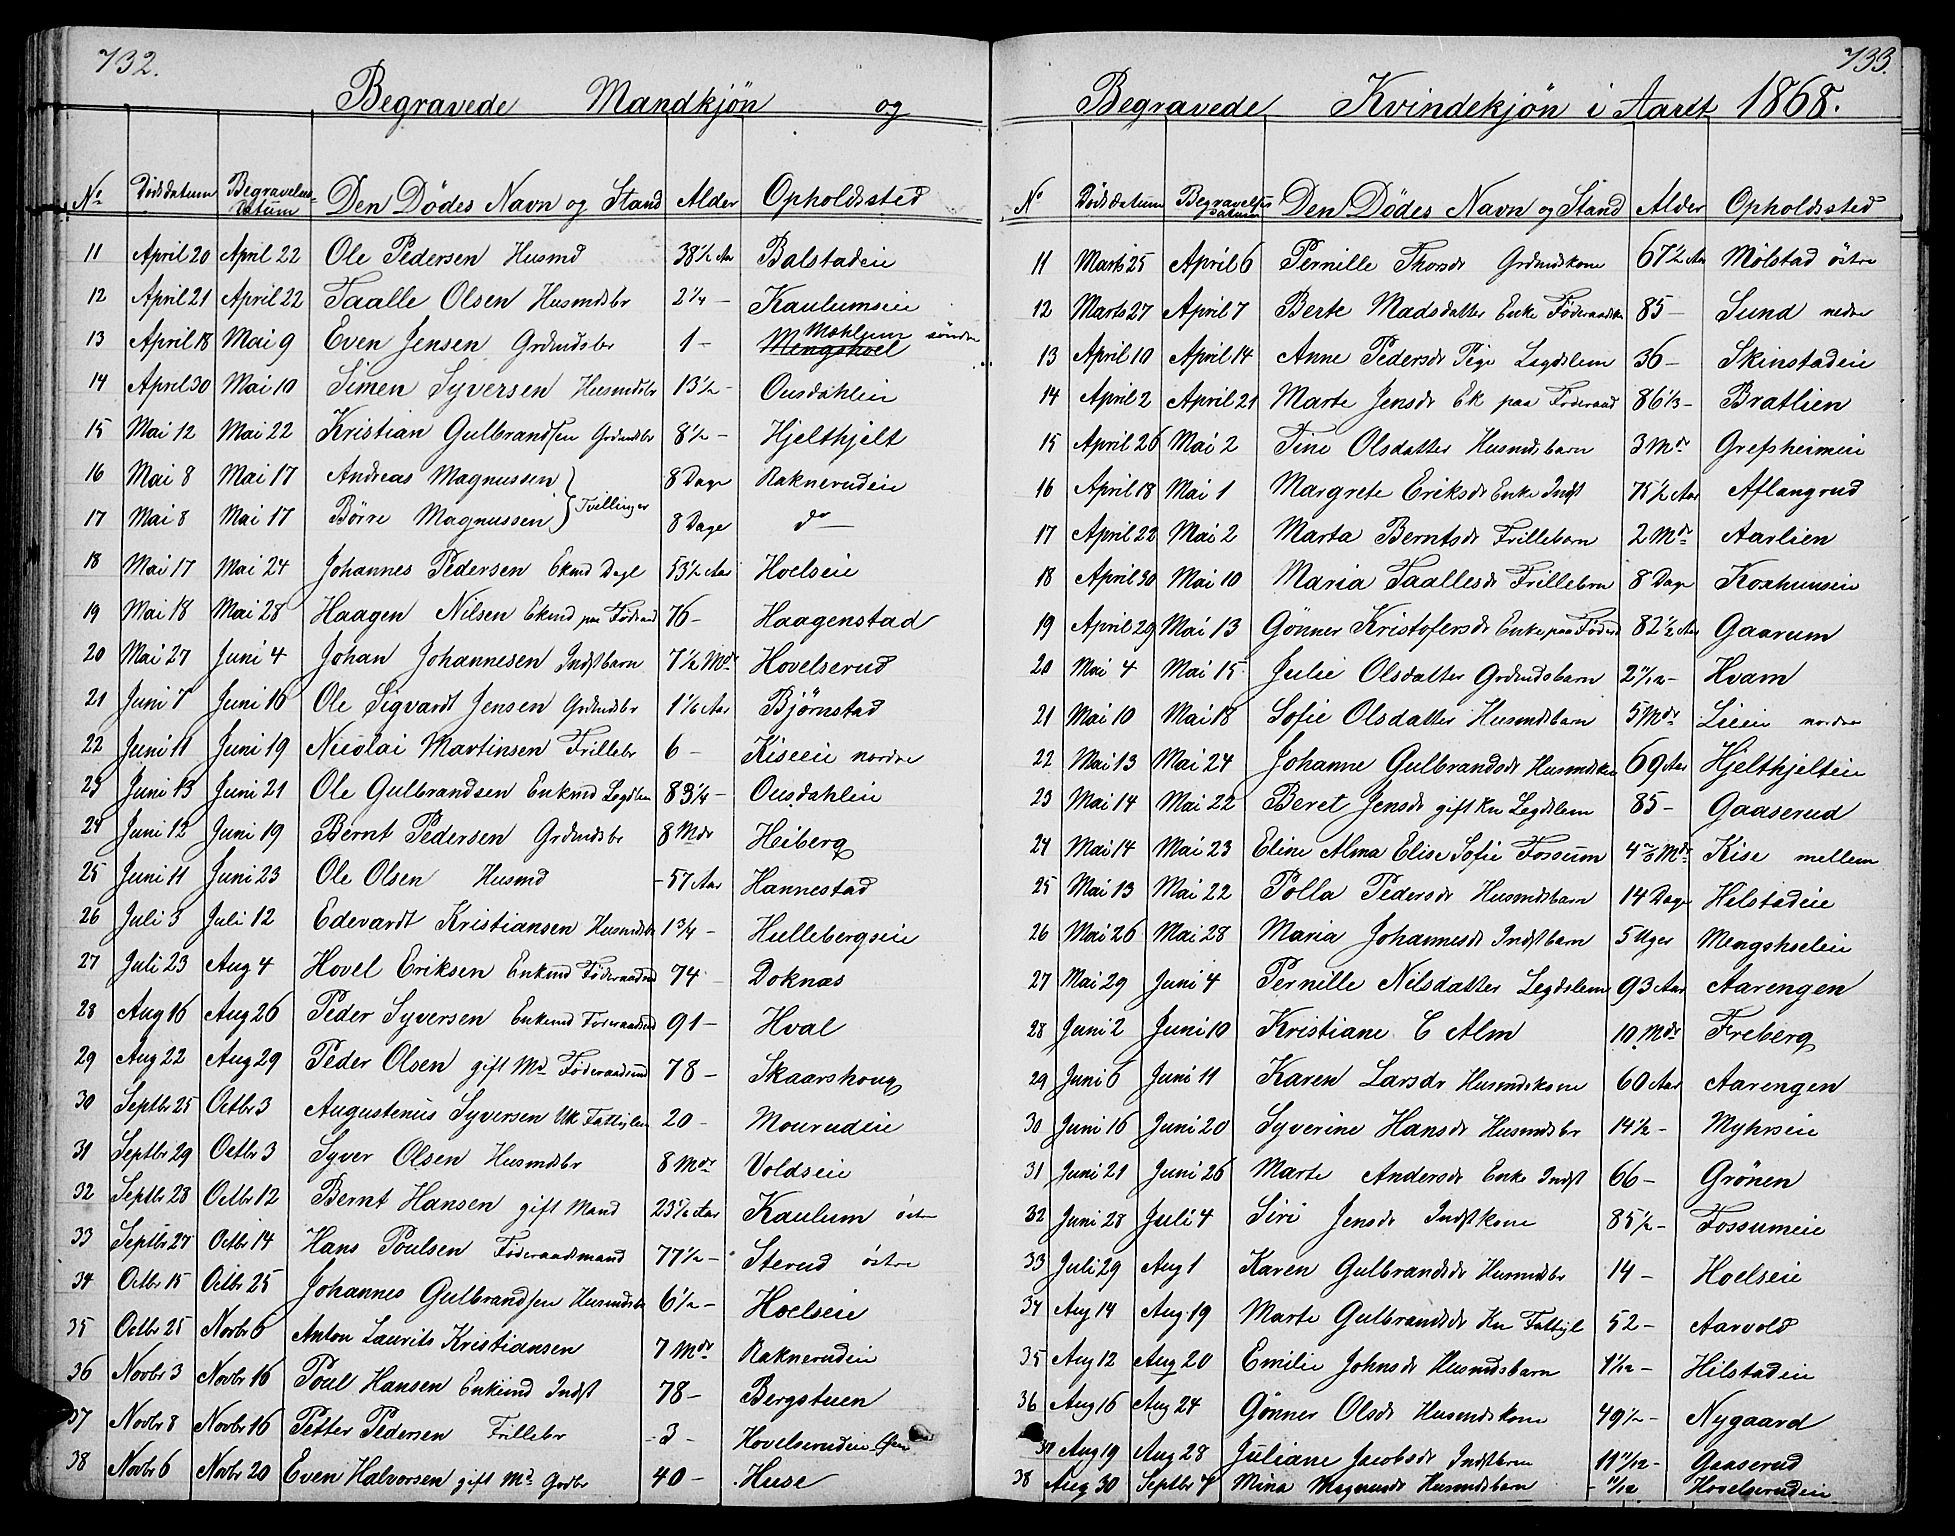 732.
Begravede Mandkjøn og
No Dødsdatum Begravelsesdatum Den Dødes Navn og Stand Alder Opholdssted
11 April 20 April 22 Ole Pedersen Husmd 38 1/2 Aar Balstadeie
12 April 21 April 22 Taalle Olsen Husmdsbr 2 1/4 – Kaulumseie
13 April 18 Mai 9 Even Jensen Grdmdsbr 1 – Mengshoel Mæhlum søndre
14 April 30 Mai 10 Simen Syversen Husmdsbr 13 1/2 – Ousdahleie
15 Mai 12 Mai 22 Kristian Gulbrandsen Grdmdsbr 8 1/2 – Hjelthjelt
16 Mai 8 Mai 17 Andreas Magnussen } Tvillinger 8 Dage Raknerudeie
17 Mai 8 Mai 17 Børre Magnussen } 8 Dage do
18 Mai 17 Mai 24 Johannes Pedersen Ekmd Dagl 53 1/2 Aar Hoelseie
19 Mai 18 Mai 28 Haagen Nilsen Ekmd paa Føderaad 76 – Haagenstad
20 Mai 27 Juni 4 Johan Johannesen Indstbarn 7 1/2 Mdr Hovelserud
21 Juni 7 Juni 16 Ole Sigvardt Jensen Grdmdsbr 1 1/6 Aar Bjørnstad
22 Juni 11 Juni 19 Nicolai Martinsen Frillebr 6 – Kiseeie nordre
23 Juni 13 Juni 21 Ole Gulbrandsen Enkmd Legdslem 83 1/4 – Ousdahleie
24 Juni 12 Juni 19 Bernt Pedersen Grdmdsbr 8 Mdr Heiberg
25 Juni 11 Juni 23 Ole Olsen Husmd – 57 Aar Hannestad
26 Juli 3 Juli 12 Edevardt Kristiansen Husmdsbr 1 3/4 – Hullebergseie
27 Juli 23 Aug 4 Hovel Eriksen Enkmd Føderaadmd 74 – Doknæs
28 Aug 16 Aug 26 Peder Syversen Enkemd Føderaadsmd 91 – Hval
29 Aug 22 Aug 29 Peder Olsen gift Md Føderaadsmd 78 – Skaarshoug
30 Septbr 25 Octbr 3 Augustenus Syversen Uk Fattiglem 20 – Mourudeie
31 Septbr 29 Octbr 3 Syver Olsen Husmdsbr 8 Mdr Voldseie
32 Septbr 28 Octbr 12 Bernt Hansen gift Mand Kaulum østr
33 Septbr 27 Octbr 14 Hans Poulsen Føderaadsmand 77 1/2 – Sterud østre
34 Octbr 15 Octbr 25 Johannes Gulbrandsen Husmdsbr 6 1/2 – Hoelseie
35 Octbr 25 Novbr 6 Anton Laurits Kristiansen 7 Mdr Raknerudeie
36 Novbr 3 Novbr 16 Poul Hansen Enkemd Indst 78 – Bergstuen
37 Novbr 8 Novbr 16 Petter Pedersen Frillebr – 3 – Hovelserudeie
38 Novbr 6 Novbr 20 Even Halvorsen gift Md Grdbr 40 – Huse
733.
Begravede Kvindekjøn i Aaret 1868.
No Dødsdatum Begravelsesdatum Den Dødes Navn og Stand Alder Opholdssted
11 Marts 25 April 6 Pernille Thorsdr Grdmdskone 67 1/2 Aar Mølstad østre
12 Marts 27 April 7 Berte Madsdatter Enke Føderaadsk 85 – Sund nedre
13 April 10 April 14 Anne Pedersdr Pige Legdslem 36 – Skinstadeie
14 April 2 April 21 Marte Jensdr Ek paa Føderaad 86 1/3 – Bratlien
15 April 26 Mai 2 Tine Olsdatter Husmdsbarn 3 Mdr Grefsheimeie
16 April 18 Mai 1 Margrete Eriksdr Enke Indst 75 1/2 Aar Aflangrud
17 April 22 Mai 2 Marta Berntsdr Frillebarn 2 Mdr Aarlien
18 April 30 Mai 10 Maria Taallesdr Frillebrn 8 Dage Korhumseie
19 April 29 Mai 13 Gønner Kristofersdr Enke paa Føderd 82 1/2 Aar Gaarum
20 Mai 4 Mai 15 Julie Olsdatter Grdmdsbarn 2 11/12 – Hvam
21 Mai 10 Mai 18 Sofie Olsdatter Husmdsbarn 5 Mdr Lieeie nordre
22 Mai 13 Mai 24 Johanne Gulbrandsdr Husmdskone 69 Aar Hjelthjelteie
23 Mai 14 Mai 22 Beret Jensdr gift Kn Legdslem 85 – Gaaserud
24 Mai 14 Mai 23 Eline Alma Elise Sofie Fossum Kise mellem
25 Mai 13 Mai 22 Polla Pedersdr Husmdsbarn 14 Dage Helstadeie
26 Mai 26 Mai 28 Maria Johannesdr Indstbarn 5 Uger Mengshoeleie
27 Mai 29 Juni 4 Pernille Nilsdatter Legdslem 93 Aar Aarengen
28 Juni 2 Juni 10 Kristiane C Alm 10 Mdr Freberg
29 Juni 6 Juni 11 Karen Larsdr Husmdskone 60 Aar Aarengen
30 Juni 16 Juni 20 Syverine Hansdr Husmdsbr 14 1/2 – Myhrseie
31 Juni 21 Juni 26 Marte Andersdr Enke Indst 66 – Grønen
32 Juni 28 Juli 4 Siri Jensdr Indstkone 85 1/2 – Fossumeie
33 Juli 29 Aug 1 Karen Gulbrandsdr Husmdsbr 14 – Hoelseie
34 Aug 14 Aug 19 Marte Gulbrandsdr Kn Fattigl 52 – Aarvold
35 Aug 12 Aug 20 Emilie Johnsdr Husmdsbarn 1 1/12 – Hilstadeie
36 Aug 16 Aug 24 Gønner Olsdr Husmdskone 49 1/2 – Nygaard
37 Aug 19 Aug 28 Juliane Jacobsdr Indstbrn 11 11/12 – Gaaserud
38 Aug 30 Septbr 4 Mina Magnusdr Husmdsbarn – 11/12 Hovelserudeie